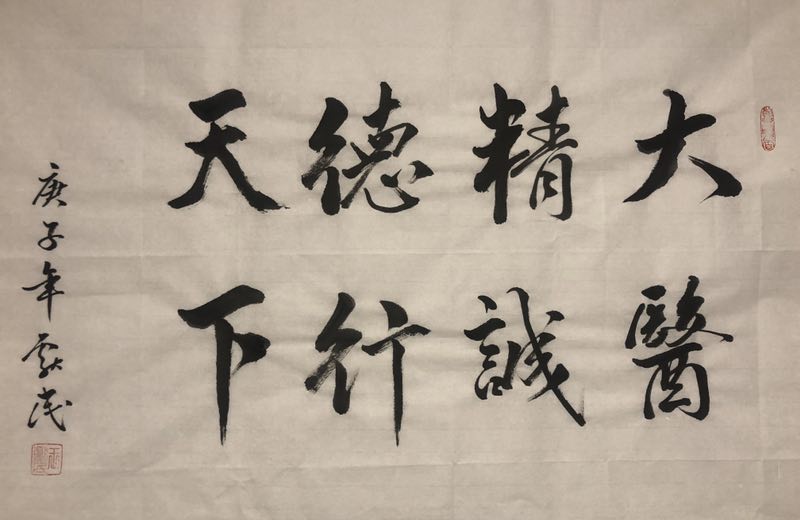 大醫
精誠
德行
天下
庚子年